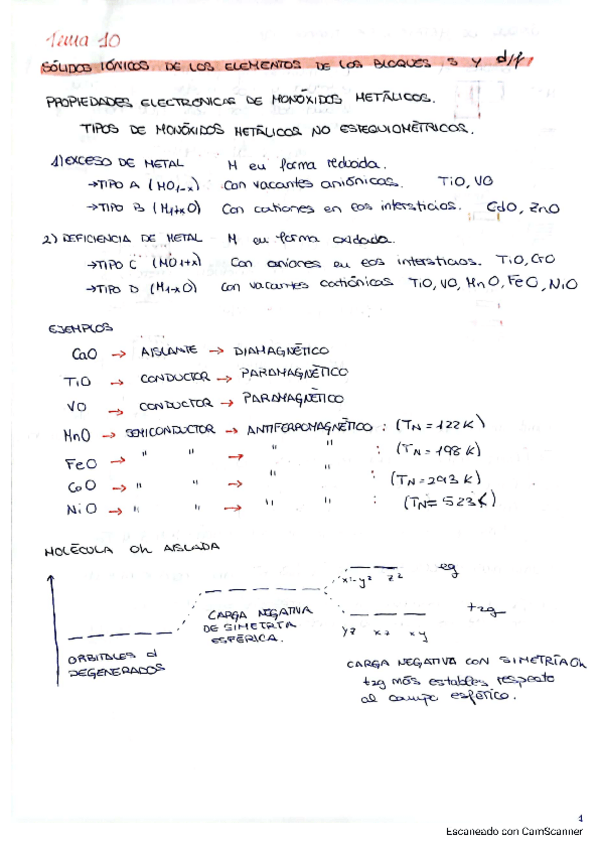 Tema 10
SÓLIDOS IÓNICOS DE LOS ELEMENTOS DE LOS BLOQUES s y d/f
PROPIEDADES ELECTRONICAS DE MONÓXIDOS METÁLICOS.
TIPOS DE MONÓXIDOS METÁLICOS NO ESTEQUIOMÉTRICOS.
1) EXCESO DE METAL M en forma reducida.
→ TIPO A (MO1-x) Con vacantes aniónicas. TiO, VO
→ TIPO B (M1+xO) Con cationes en los intersticios. CdO, ZnO
2) DEFICIENCIA DE METAL M en forma oxidada.
→ TIPO C (MO1+x) Con aniones en los intersticios. TiO, CrO
→ TIPO D (M1-xO) Con vacantes catiónicas TiO, VO, MnO, FeO, NiO
EJEMPLOS
CaO → AISLANTE → DIAMAGNÉTICO
TiO → CONDUCTOR → PARAMAGNÉTICO
VO → CONDUCTOR → PARAMAGNÉTICO
MnO → SEMICONDUCTOR → ANTIFERROMAGNÉTICO : (TN = 122 K)
FeO → " " → " " : (TN = 198 K)
CoO → " " → " " : (TN = 293 K)
NiO → " " → " " : (TN = 523 K)
MOLÉCULA Oh AISLADA
x²-y² z² eg
CARGA NEGATIVA
DE SIMETRÍA
ESFÉRICA.
t2g
yz xz xy
ORBITALES d
DEGENERADOS
CARGA NEGATIVA CON SIMETRÍA Oh
t2g más estables respecto
al campo esférico.
1
Escaneado con CamScanner